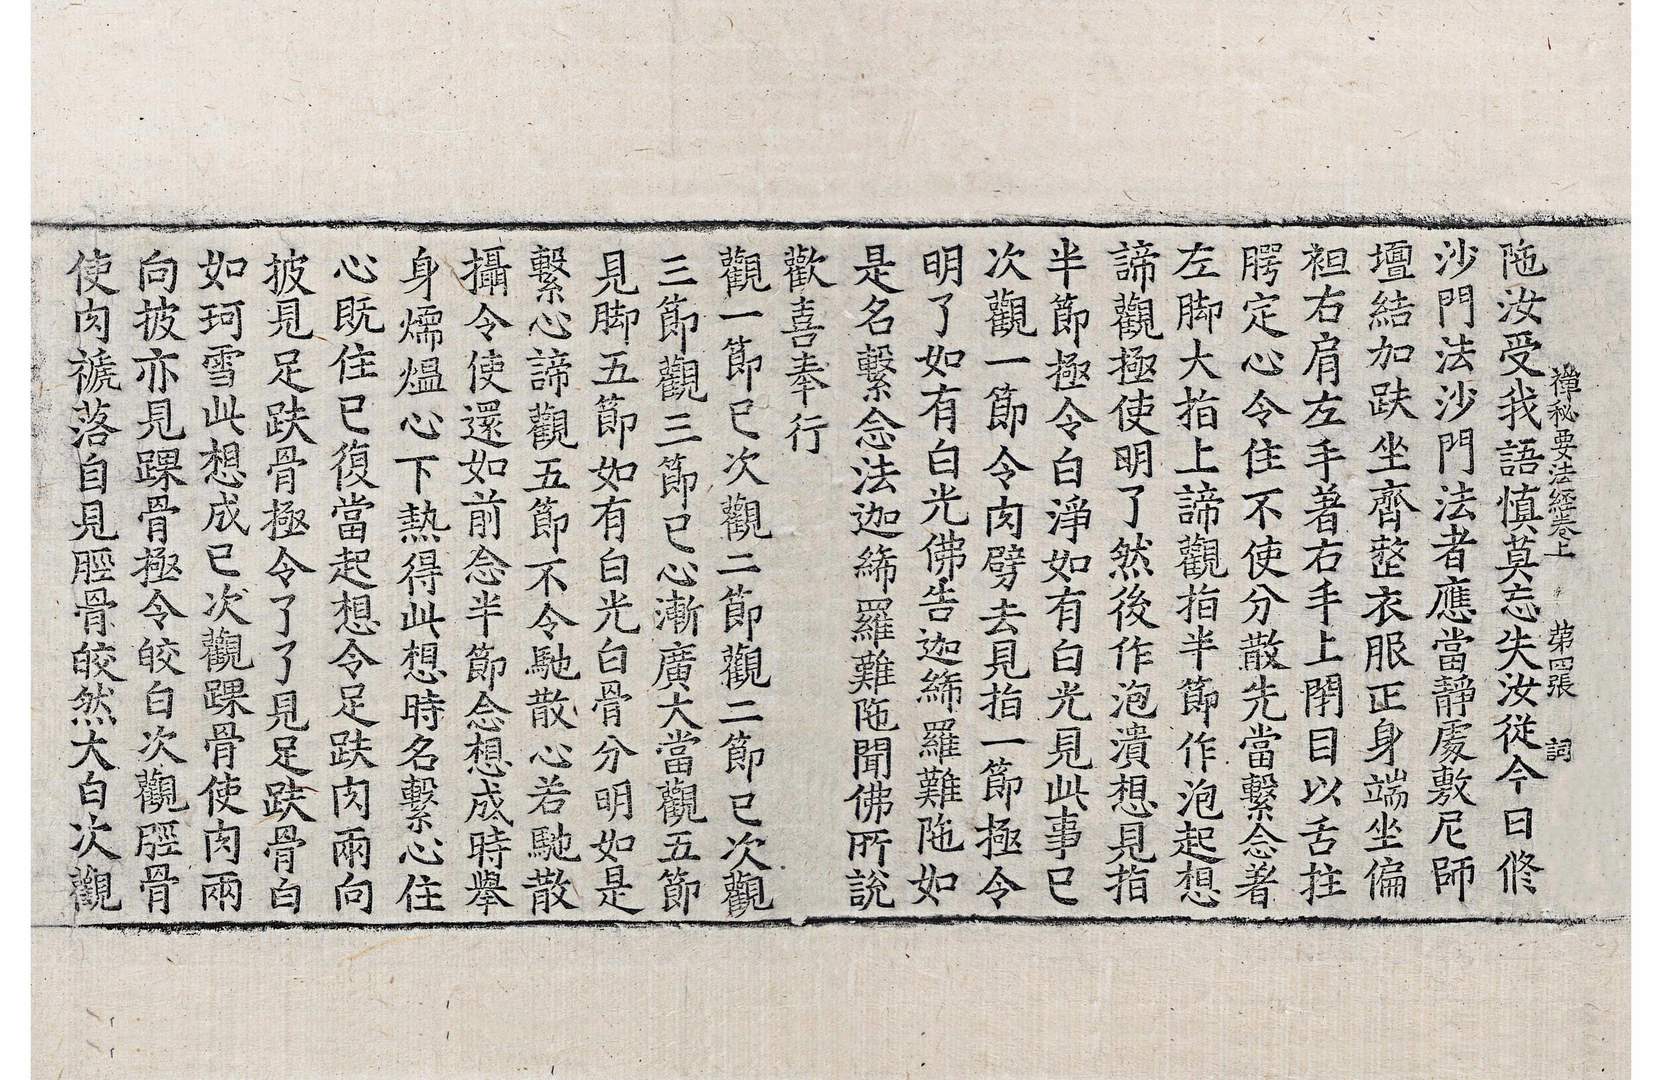 禪秘要法經卷上 第四張 詞
陁汝受我語慎莫忘失汝從今日修
沙門法沙門法者應當靜處敷尼師
壇結加趺坐齊整衣服正身端坐偏
袒右肩左手著右手上閉目以舌拄
腭定心令住不使分散先當繫念著
左脚大指上諦觀指半節作泡起想
諦觀極使明了然後作泡潰想見指
半節極令白淨如有白光見此事已
次觀一節令肉劈去見指一節極令
明了如有白光佛告迦絺羅難陁如
是名繫念法迦絺羅難陁聞佛所說
歡喜奉行
觀一節已次觀二節觀二節已次觀
三節觀三節已心漸廣大當觀五節
見脚五節如有白光白骨分明如是
繫心諦觀五節不令馳散心若馳散
攝令使還如前念半節念想成時舉
身煗熅心下熱得此想時名繫心住
心既住已復當起想令足趺肉兩向
披見足趺骨極令了了見足趺骨白
如珂雪此想成已次觀踝骨使肉兩
向披亦見踝骨極令皎白次觀脛骨
使肉褫落自見脛骨皎然大白次觀